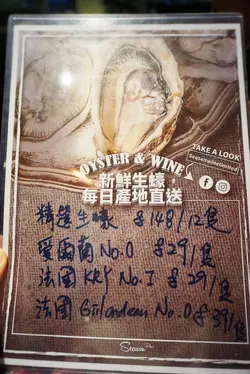 OYSTER & WINE
新鮮生蠔
每日產地直送
TAKE A LOOK
Seasonwinelimited
精選生蠔 $148/12隻
愛爾蘭 No.0 $29/隻
法國 KKJ No.1 $29/隻
法國 Gillardeau No.0 $39/隻
Season